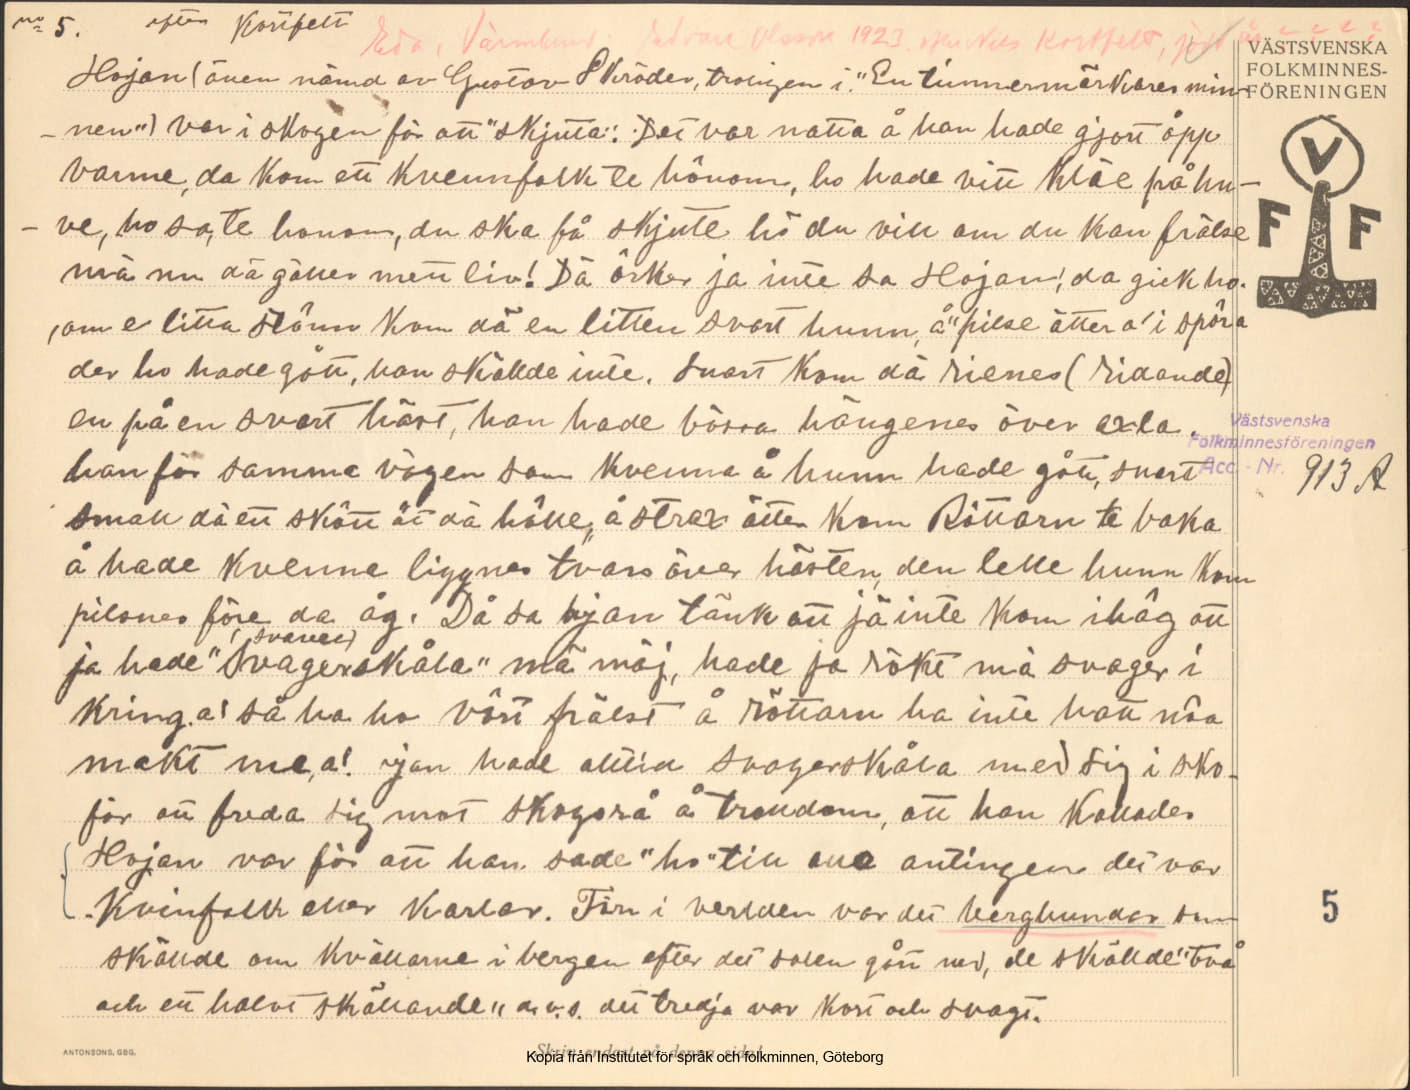 no 5. efter Kortfelt
Eda, Värmland. Edvard Olsson 1923.
Hojan (även nämd av Gustav Skröder, troligen i "En timmermärkares min-
-nen") var i skogen för att "skjuta". Det var natta å han hade gjort åpp
varme, da kom ett kvennfolk te hônom, ho hade vitt kläe på hu-
-ve, ho sa, te honom, du ska få skjute hö du vill om du kan frälse
mä nu dä gäller mett liv! Dä örker ja inte sa Hojan, da gick ho.
,om e lita stônn kom dä en litten svart hunn, å "pilse ätter a' i spôra
der ho hade gått, han skällde inte. Snart kom dä rienes (ridande)
en på en svart häst, han hade bössa hängenes över axla.
han för samma vägen som kvenna å hunn hade gått, snart
small dä ett skôtt åt dä hålle, å strax ätter kom Röttarn te baka
å hade kvenne liggnes tvars över hästen, den lelle hunn kom
pilsnes före da åg. Då sa hjan tänk att jä inte kom ihåg att
ja hade "Svagerskåla" mä mäj, hade ja rökt mä svager i
(svavel)
kring a' så ha ho vôrt frälst å röttarn ha inte hatt nôa
makt me, a'. ojan hade alltid svagerskåla med sig i sko-
för att freda sig mot skogsrå å trolldom, att han kallades
Hojan var för att han sade "ho" till alla antingen det var
kvinfolk eller karlar. Förr i verlden var det berghundar som
skällde om kvällarne i bergen efter det solen gått ned, de skällde "två
och ett halvt skällande" d.v.s. det tredja var kort och svagt.
VÄSTSVENSKA
FOLKMINNES-
FÖRENINGEN
V
F F
Västsvenska
Folkminnesföreningen
Acc. - Nr. 913 A
5
ANTONSONS, GBG.
Skriv endast på denna sida!
Kopia från Institutet för språk och folkminnen, Göteborg